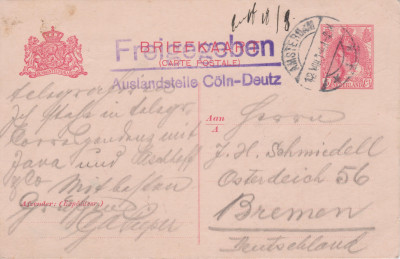 BRIEFKAART
(CARTE POSTALE)
Freigegeben
Auslandstelle Cöln-Deutz
AMSTERDAM
telegraphiert
Ich stehe in telegr.
Correspondenz mit
Java und
Mit besten
Afzender: (Expéditeur)
Aan
A
Herrn
J. H. Schmiedell
Osterdeich 56
Bremen
Deutschland